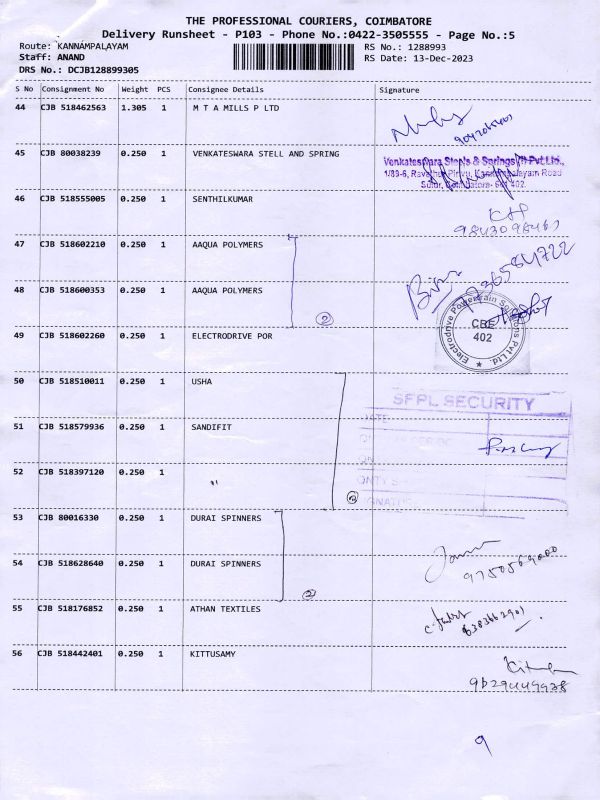 THE PROFESSIONAL COURIERS, COIMBATORE
Delivery Runsheet - P103 - Phone No.:0422-3505555 - Page No.:5
Route: KANNAMPALAYAM
RS No.: 1288993
Staff: ANAND
RS Date: 13-Dec-2023
DRS No.: DCJB128899305
S No Consignment No Weight PCS Consignee Details Signature
44 CJB 518462563 1.305 1 M T A MILLS P LTD
45 CJB 80038239 0.250 1 VENKATESWARA STELL AND SPRING
Venkateswara Steels & Springs Pvt Ltd.,
46 CJB 518555005 0.250 1 SENTHILKUMAR
47 CJB 518602210 0.250 1 AAQUA POLYMERS
48 CJB 518600353 0.250 1 AAQUA POLYMERS
2
Electrodrive Powertrain Solutions Pvt Ltd.
CBE
402
49 CJB 518602260 0.250 1 ELECTRODRIVE POR
50 CJB 518510011 0.250 1 USHA
SFPL SECURITY
51 CJB 518579936 0.250 1 SANDIFIT
52 CJB 518397120 0.250 1 "
3
53 CJB 80016330 0.250 1 DURAI SPINNERS
54 CJB 518628640 0.250 1 DURAI SPINNERS
2
55 CJB 518176852 0.250 1 ATHAN TEXTILES
56 CJB 518442401 0.250 1 KITTUSAMY
9